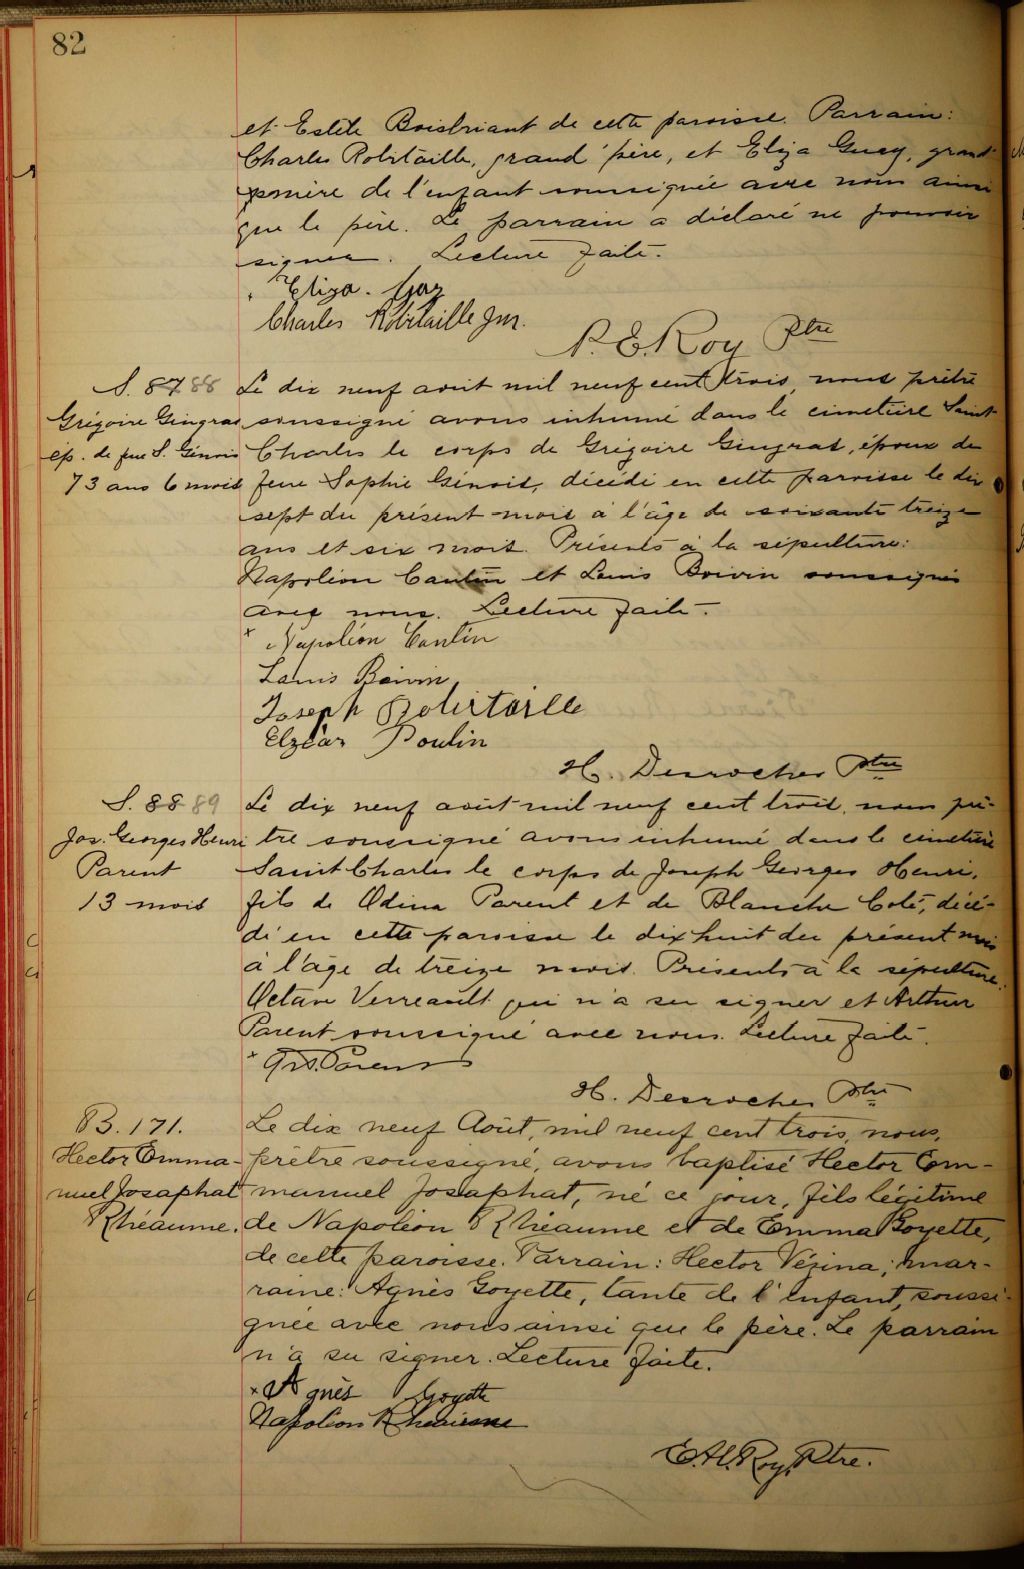 82
et Estelle Boisbriant de cette paroisse. Parrain:
Charles Robitaille, grand'père, et Eliza Guey, grand'
mère de l'enfant soussignée avec nous ainsi
que le père. Le parrain a déclaré ne pouvoir
signer. Lecture faite.
Eliza. Gay
Charles Robitaille Jnr.
P. E. Roy Ptre
S. 87 88
Grégoire Gingras
ép. de feue S. Génois
73 ans 6 mois
Le dix neuf août mil neuf cent trois, nous prêtre
soussigné avons inhumé dans le cimetière Saint
Charles le corps de Grégoire Gingras, époux de
feue Sophie Génois, décédé en cette paroisse le dix
sept du présent mois à l'âge de soixante treize
ans et six mois. Présents à la sépulture:
Napoléon Cantin et Louis Boivin soussignés
avec nous. Lecture faite.
x Napoléon Cantin
Louis Boivin
Joseph Robitaille
Elzéar Poulin
H. Desroches Ptre
S. 88 89
Jos. Georges Henri
Parent
13 mois
Le dix neuf août mil neuf cent trois, nous prê-
tre soussigné avons inhumé dans le cimetière
Saint Charles le corps de Joseph Georges Henri,
fils de Odina Parent et de Blanche Coté, décé-
dé en cette paroisse le dix huit du présent mois
à l'âge de treize mois. Présents à la sépulture:
Octave Verreault qui n'a su signer et Arthur
Parent soussigné avec nous. Lecture faite.
x Art. Parent
H. Desroches Ptre
B. 171.
Hector Emma-
nuel Josaphat
Rhéaume.
Le dix neuf Août, mil neuf cent trois, nous,
prêtre soussigné, avons baptisé Hector Em-
manuel Josaphat, né ce jour, fils légitime
de Napoléon Rhéaume et de Emma Goyette,
de cette paroisse. Parrain: Hector Vézina; mar-
raine: Agnès Goyette, tante de l'enfant, soussi-
gnée avec nous ainsi que le père. Le parrain
n'a su signer. Lecture faite.
x Agnès Goyette
Napoléon Rhéaume
E. H. Roy, Ptre.